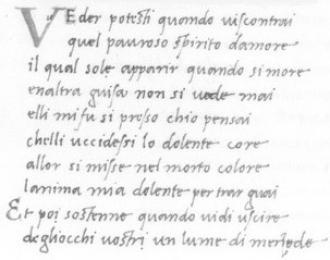 VEder potesti quando uiscontrai
quel pauroso spirito damore
il qual sole apparir quando si more
enaltra guisa non si uede mai
elli mifu si presso chio pensai
chelli uccidessi lo dolente core
allor si misse nel morto colore
lanima mia dolente per trar guai
Et poi sostenne quando uidi uscire
degliocchi uostri un lume di merzede